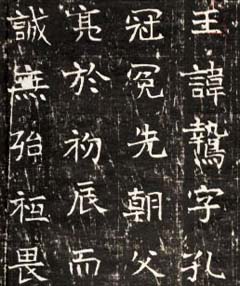 王諱鷙字孔
冠冕先朝父
亮於初辰而
誠無弛祗畏